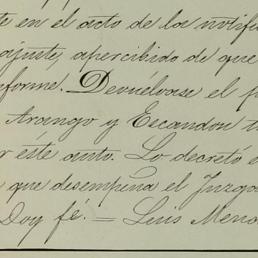 te en el acto de los notifi
ajuste, apercibido de que
forme. Devuélvase el p
Arango y Escandon t
r éste auto. Lo decretó e
que desempeña el Juzga
Doy fé. = Luis Mend